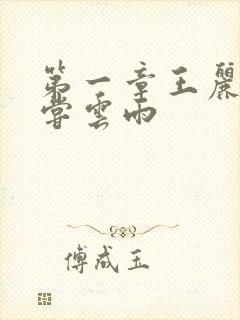 第一章王麗
嘗雲雨
傅成玉